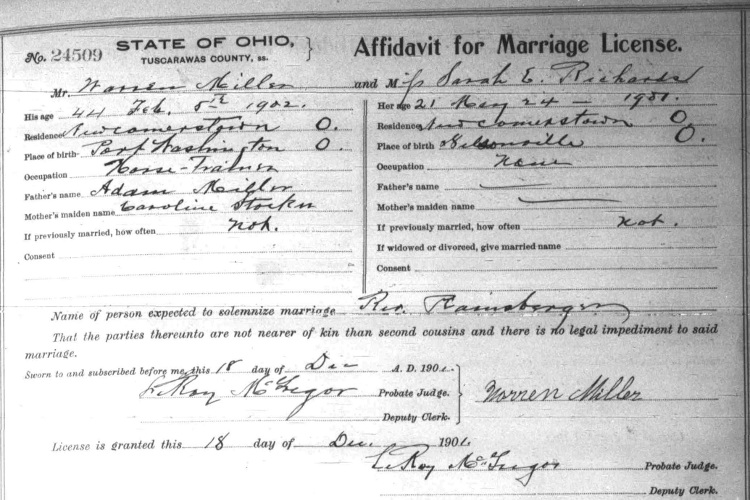 No. 24509 STATE OF OHIO, TUSCARAWAS COUNTY, ss. } Affidavit for Marriage License.
Mr. Warren Miller and Miss Sarah E. Richards
His age 44 Feb. 8th 1902.
Residence Newcomerstown O.
Place of birth Port Washington O.
Occupation Horse-Trainer
Father's name Adam Miller
Mother's maiden name Caroline Stocker
If previously married, how often Not.
Consent
Her age 21 May 24 - 1901.
Residence Newcomerstown O.
Place of birth O.
Occupation None
Father's name
Mother's maiden name
If previously married, how often Not.
If widowed or divorced, give married name
Consent
Name of person expected to solemnize marriage Rev.
That the parties thereunto are not nearer of kin than second cousins and there is no legal impediment to said
marriage.
Sworn to and subscribed before me, this 18 day of Dec A. D. 190
LeRoy McGregor Probate Judge.
Deputy Clerk.
Warren Miller
License is granted this 18 day of Dec. 1901.
LeRoy McGregor Probate Judge.
Deputy Clerk.